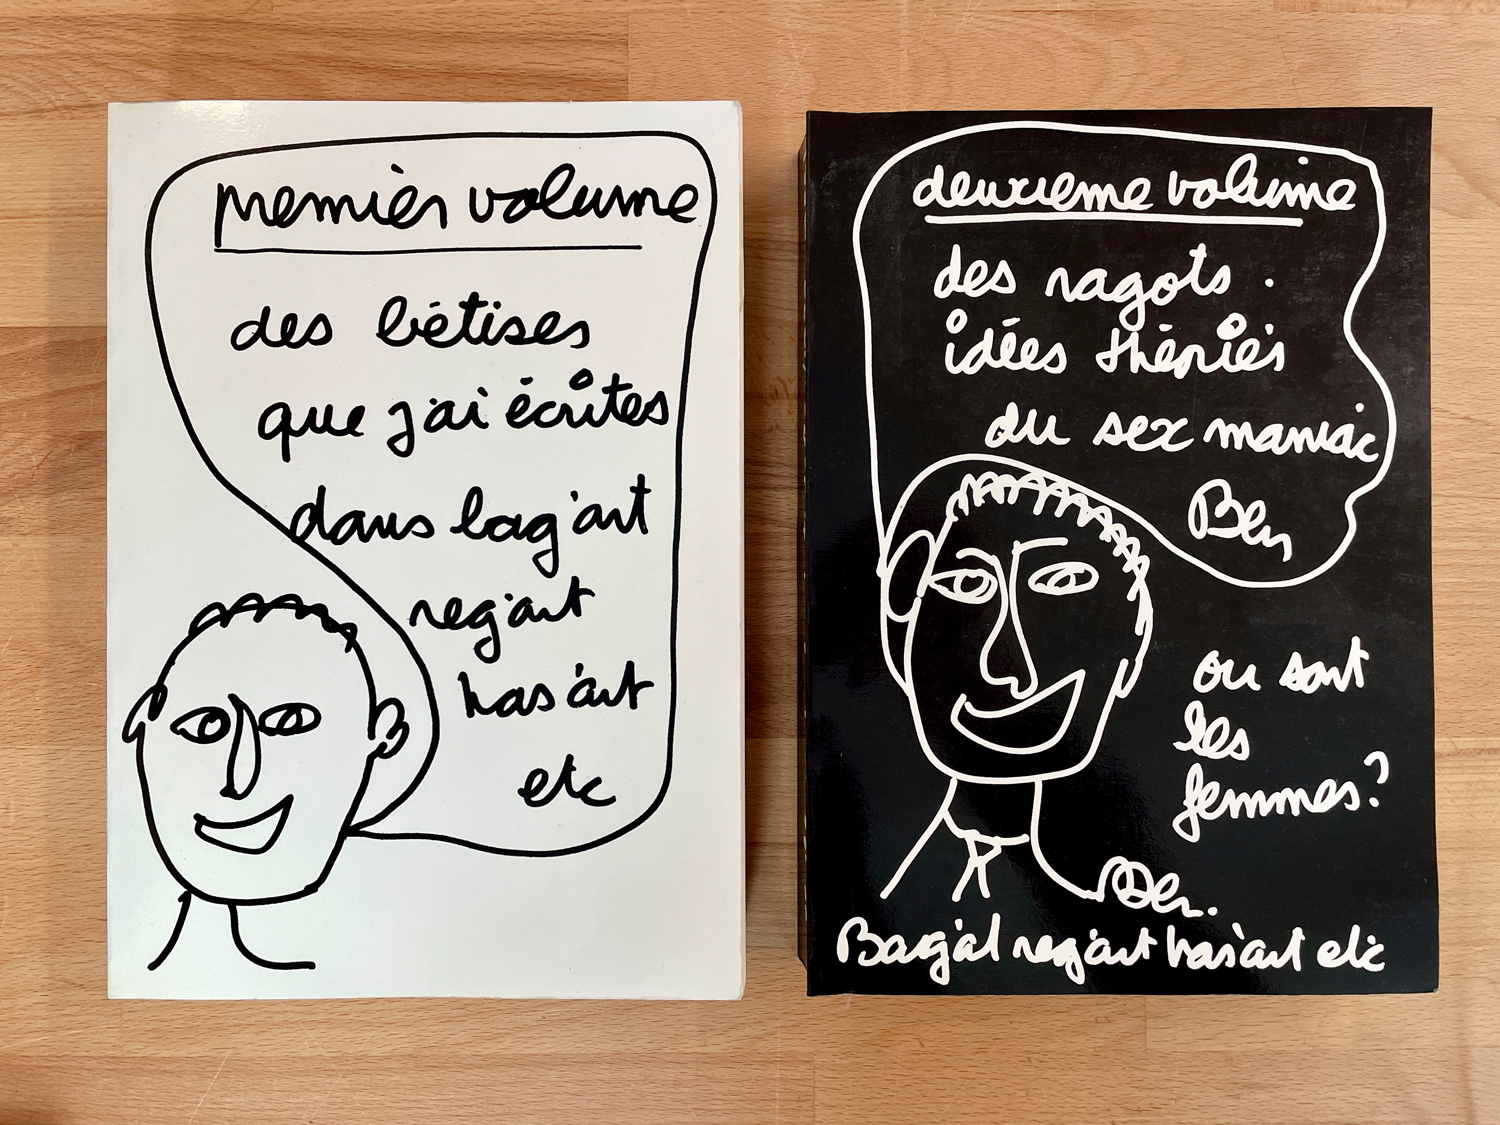 premier volume
des bétises
que j'ai écrites
dans lag'art
reg'art
has'art
etc
deuxieme volume
des ragots.
idées théories
du sex maniac
Ben
ou sont
les
femmes?
Ben.
reg'art has'art etc